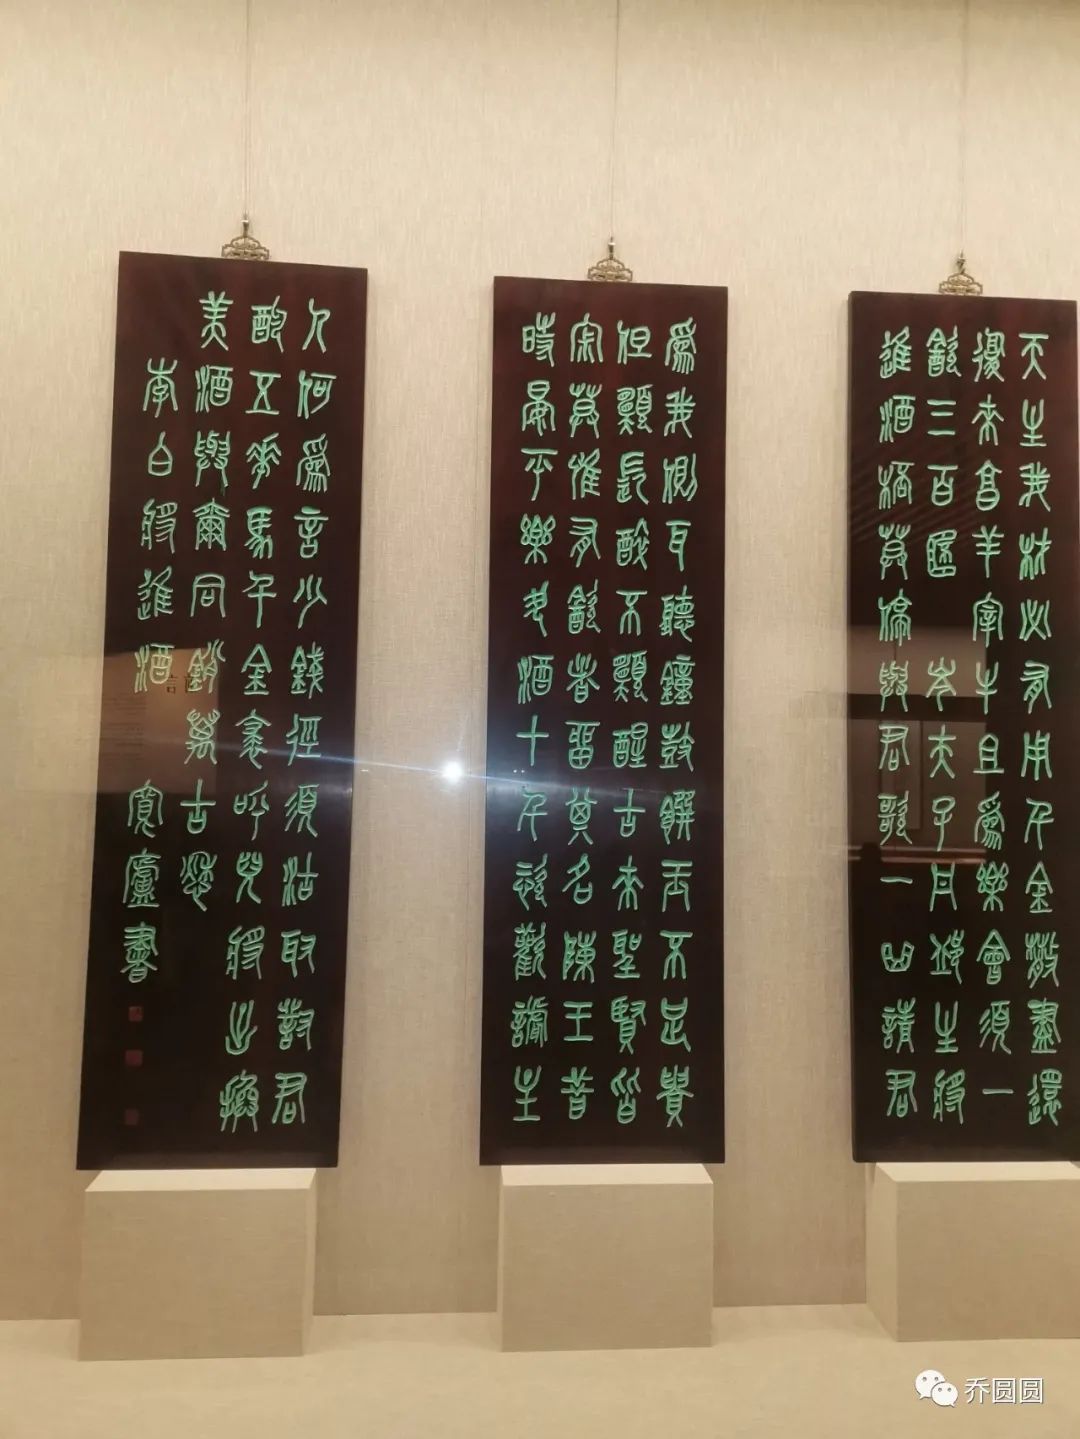 天生我材必有用千金散盡還
復來烹羊宰牛且爲樂會須一
飲三百杯 岑夫子丹丘生將
進酒杯莫停與君歌一曲請君
爲我側耳聽鐘鼓饌玉不足貴
但願長醉不願醒古來聖賢皆
寂莫惟有飲者留其名陳王昔
時宴平樂斗酒十千恣歡謔主
人何爲言少錢徑須沽取對君
酌五花馬千金裘呼兒將出換
美酒與爾同銷萬古愁
李白將進酒 寬廬書
乔圆圆